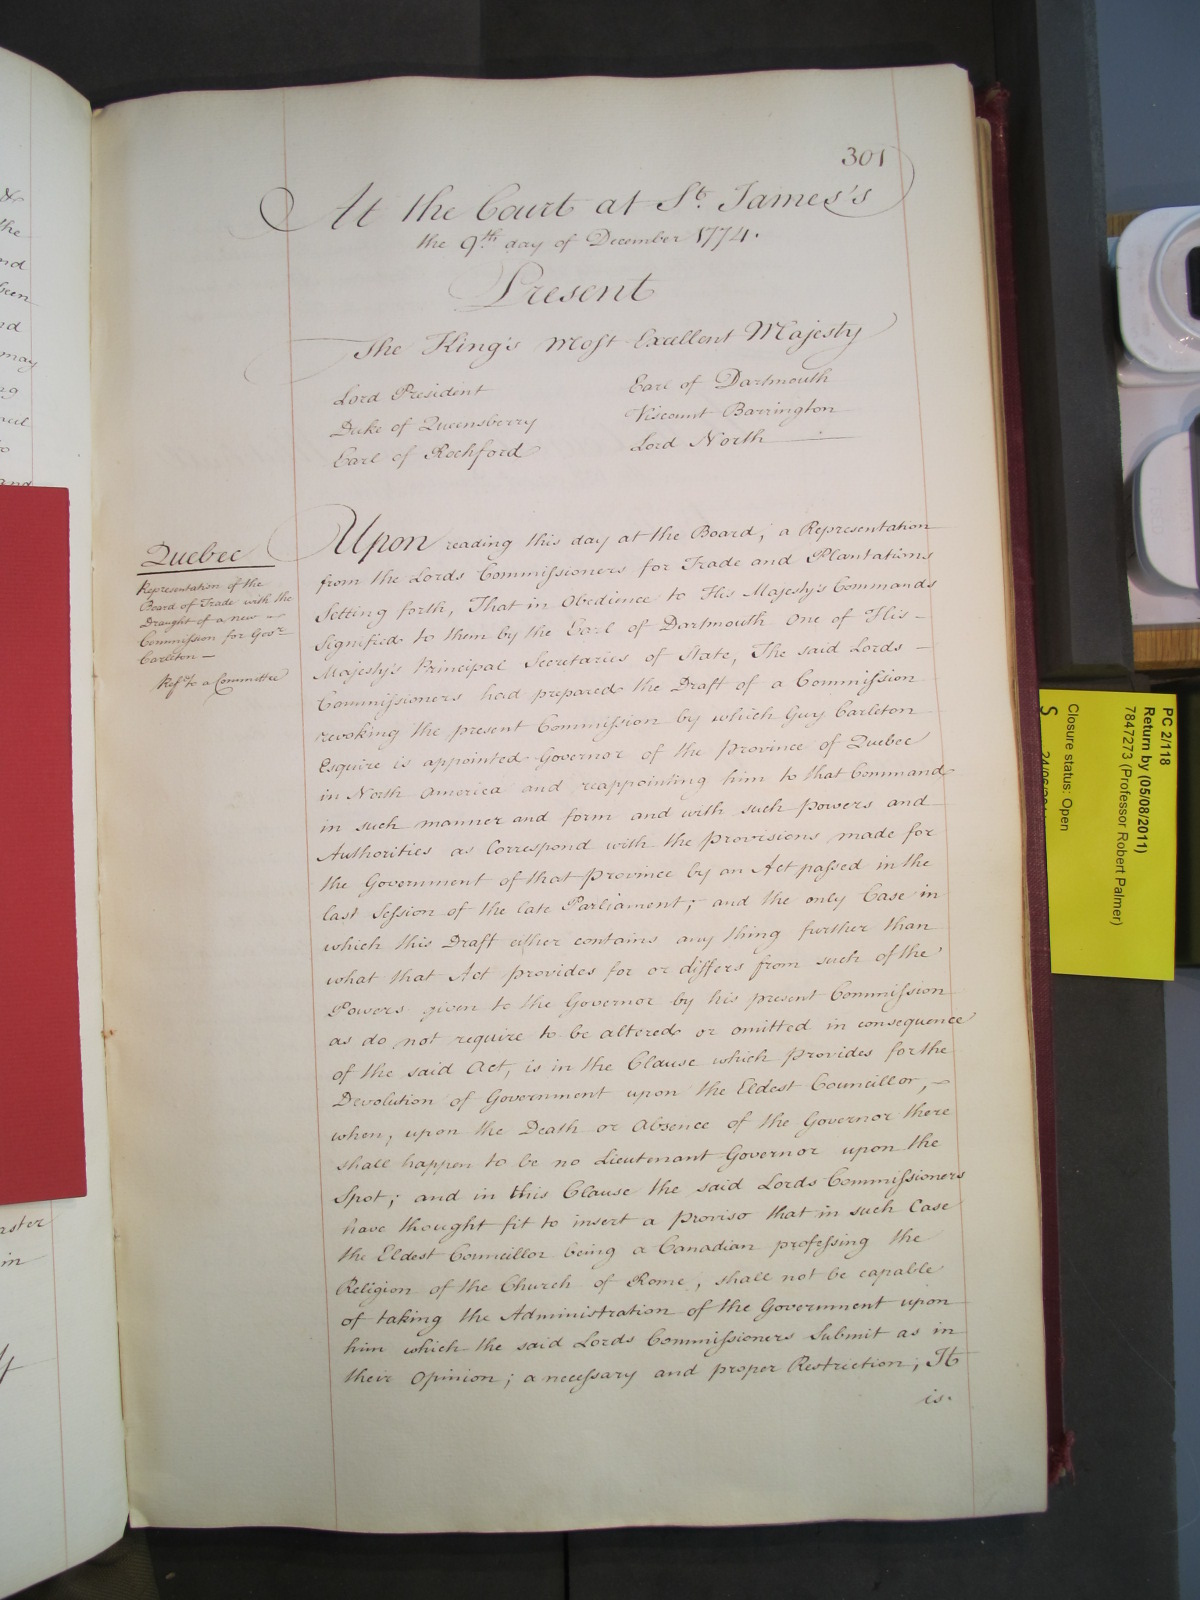 301
At the Court at St. James's
the 9th day of December 1774.
Present
The King's Most Excellent Majesty
Lord President
Duke of Queensberry
Earl of Rochford
Earl of Dartmouth
Viscount Barrington
Lord North
Quebec
Representation of the
Board of Trade with the
Draught of a new
Commission for Govr
Carleton
Refd to a Committee
Upon reading this day at the Board, a Representation
from the Lords Commissioners for Trade and Plantations
Setting forth, That in Obedience to His Majesty's Commands
Signified to them by the Earl of Dartmouth One of His
Majesty's Principal Secretaries of State, The said Lords
Commissioners had prepared the Draft of a Commission
revoking the present Commission by which Guy Carleton
Esquire is appointed Governor of the Province of Quebec
in North America and reappointing him to that Command
in such manner and form and with such Powers and
Authorities as Correspond with the Provisions made for
the Government of that Province by an Act passed in the
last Session of the late Parliament; and the only Case in
which this Draft either contains any thing further than
what that Act provides for or differs from such of the
Powers given to the Governor by his present Commission
as do not require to be altered or omitted in consequence
of the said Act, is in the Clause which provides for the
Devolution of Government upon the Eldest Councillor,
when, upon the Death or Absence of the Governor there
shall happen to be no Lieutenant Governor upon the
Spot; and in this Clause the said Lords Commissioners
have thought fit to insert a Proviso that in such Case
the Eldest Councillor being a Canadian professing the
Religion of the Church of Rome, shall not be capable
of taking the Administration of the Government upon
him which the said Lords Commissioners Submit as in
their Opinion; a necessary and proper Restriction; It
is.
PC 2/118
Return by (05/08/2011)
7847273 (Professor Robert Palmer)
Closure status: Open
S
&
the
been
may
aster
in